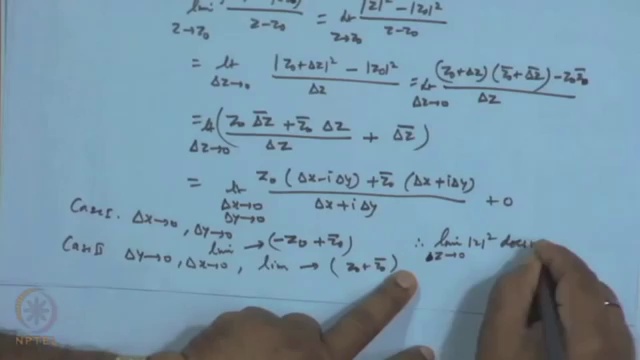 lim z→z₀ z-z₀ = lt z→z₀ |z|²-|z₀|² / z-z₀
= lt Δz→0 |z₀+Δz|² - |z₀|² / Δz = lt Δz→0 (z₀+Δz)(z̄₀+Δ̄z̄) - z₀z̄₀ / Δz
= lt Δz→0 ( z₀ Δ̄z̄ + z̄₀ Δz / Δz + Δ̄z̄ )
= lt Δx→0 Δy→0 z₀ (Δx-iΔy) + z̄₀ (Δx+iΔy) / Δx+iΔy + 0
Case I. Δx→0, Δy→0
lim → (-z₀+z̄₀)
Case II Δy→0, Δx→0, lim → (z₀+z̄₀)
∴ lim Δz→0 |z|² does
NPTEL